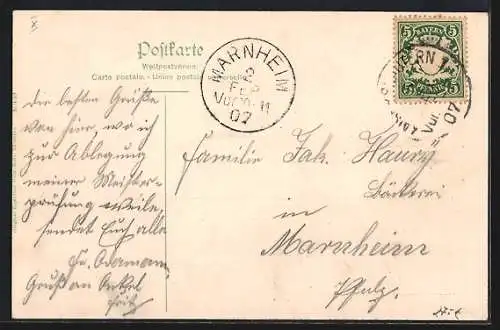 Postkarte
Weltpostverein.
Carte postale. - Union postale universelle.
MARNHEIM
2
FEB
Vor 10-11
07
BAYERN
5 5
PFENNIG
07
die besten Grüße
von hier, wo ich
zur Ablegung
meiner Meister-
prüfung weile,
sendet Euch alle
Fr. Adamann
Gruß an Onkel
Fritz
Familie Jak. Haury
Bäckerei
in
Marnheim
Pfalz.